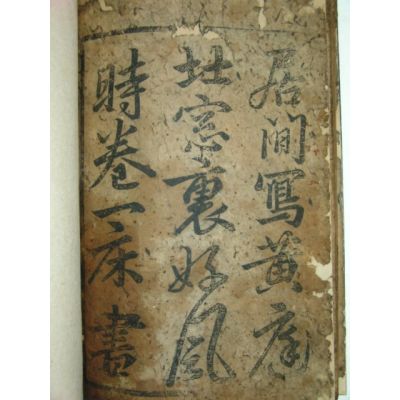 居間寫黃庭
北窓裏好風
時卷一床書